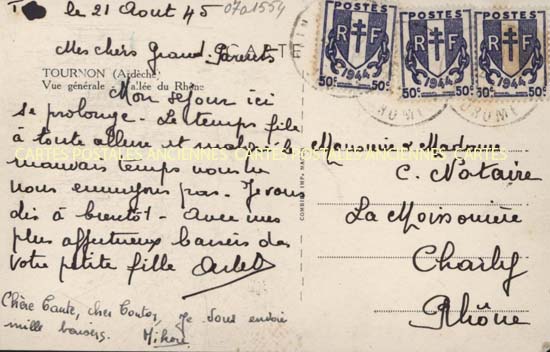 le 21 Aout 45
0701554
Mes chers Grand-Parents
CARTE
TOURNON (Ardèche)
Vue générale - Vallée du Rhône
Mon séjour ici
se prolonge. Le temps file
à toute allure et malgré le
mauvais temps nous ne
nous ennuyons pas. Je vous
dis à bientôt. Avec mes
plus affectueux baisers de
votre petite fille Arlet
Chère Tante, cher Tonton, Je vous envoie
mille baisers.
POSTES
RF
1944
50c 50c
POSTES
RF
1944
50c 50c
POSTES
RF
1944
50c 50c
CARTES POSTALES ANCIENNES CARTES POSTALES ANCIENNES CARTES
COMBIER IMP.
Monsieur Madame
C. Notaire
La Moissonière
Charly
Rhône